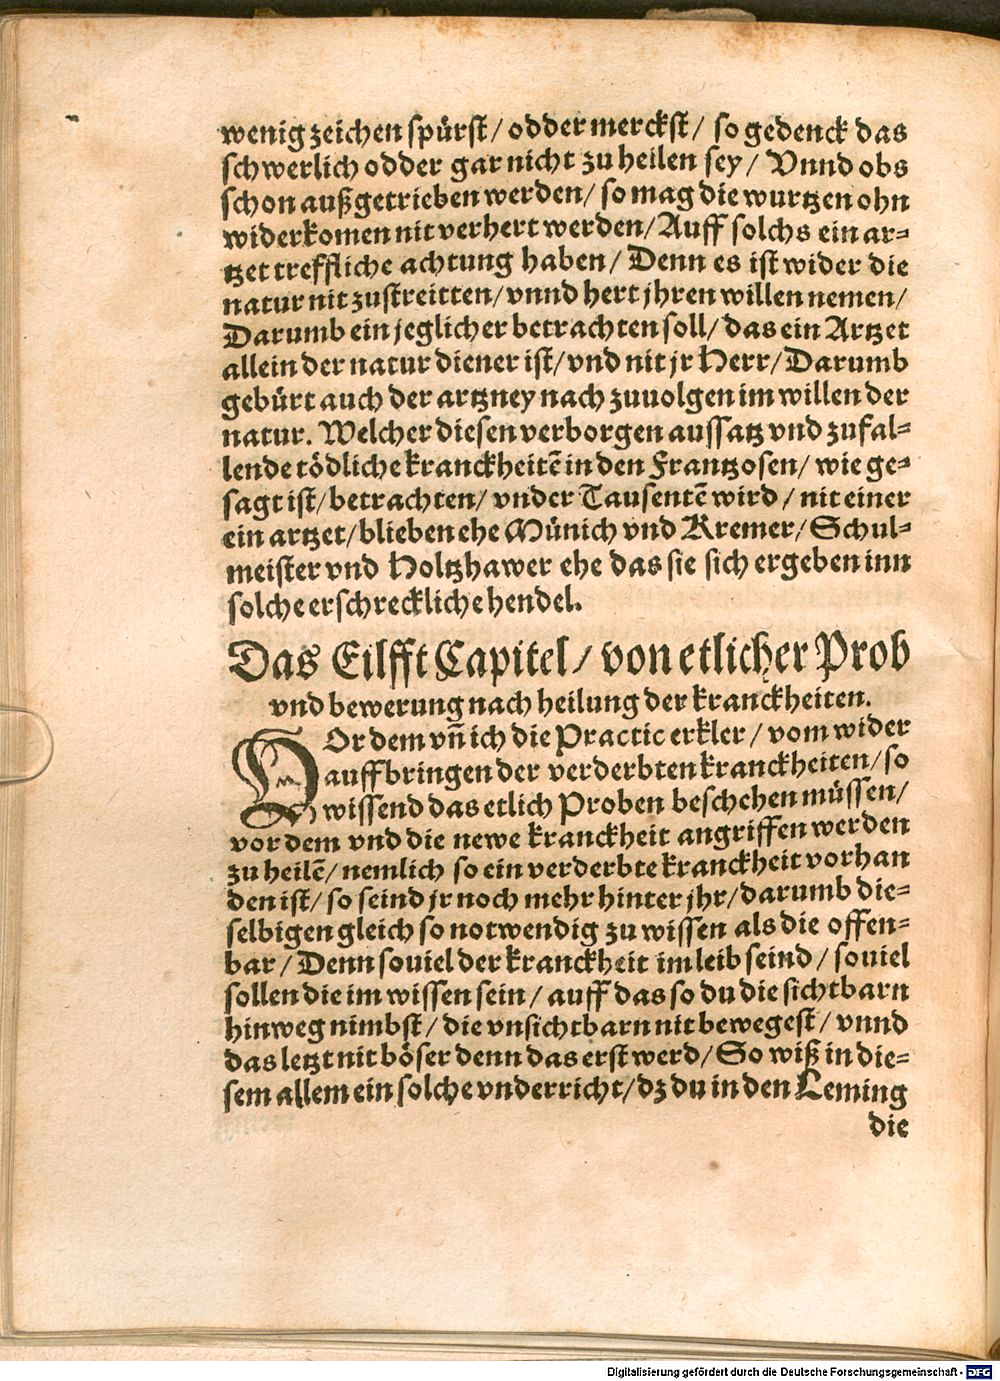 wenig zeichen spürst / odder merckst / so gedenck das
schwerlich odder gar nicht zu heilen sey / Vnnd obs
schon außgetrieben werden / so mag die wurtzen ohn
widerkomen nit verhert werden / Auff solchs ein ar⸗
tzet treffliche achtung haben / Denn es ist wider die
natur nit zustreitten / vnnd hert jhren willen nemen /
Darumb ein jeglicher betrachten soll / das ein Artzet
allein der natur diener ist / vnd nit jr Herr / Darumb
gebürt auch der artzney nach zuuolgen im willen der
natur. Welcher diesen verborgen aussatz vnd zufal⸗
lende tödliche kranckheitē in den Frantzosen / wie ge⸗
sagt ist / betrachten / vnder Tausentē wird / nit einer
ein artzet / blieben ehe Münich vnd Kremer / Schul⸗
meister vnd Holtzhawer ehe das sie sich ergeben inn
solche erschreckliche hendel.
Das Eilfft Capitel / von etlicher Prob
vnd bewerung nach heilung der kranckheiten.
VOr dem vñ ich die Practic erkler / vom wider
auffbringen der verderbten kranckheiten / so
wissend das etlich Proben beschehen müssen /
vor dem vnd die newe kranckheit angriffen werden
zu heilē / nemlich so ein verderbte kranckheit vorhan
den ist / so seind jr noch mehr hinter jhr / darumb die⸗
selbigen gleich so notwendig zu wissen als die offen⸗
bar / Denn souiel der kranckheit im leib seind / souiel
sollen die im wissen sein / auff das so du die sichtbarn
hinweg nimbst / die vnsichtbarn nit bewegest / vnnd
das letzt nit böser denn das erst werd / So wiß in die⸗
sem allem ein solche vnderricht / dz du in den Leming
die
Digitalisierung gefördert durch die Deutsche Forschungsgemeinschaft - DFG